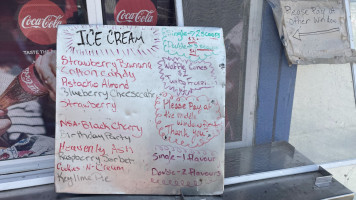 Coca-Cola
TASTE THE
Coca-Cola
ICE CREAM
Strawberry Banana
Cotton Candy
Pistachio Almond
Blueberry Cheesecake
Strawberry
NSA-Black Cherry
Birthday Party
Heavenly Ash
Raspberry Sorbet
N-Cream
Key Lime Pie
Single
Double
Waffle Cones
$2
Please Pay at
the middle
window first
Thank you
Single-1 Flavour
Double-2 Flavours
Please Pay at
other Window